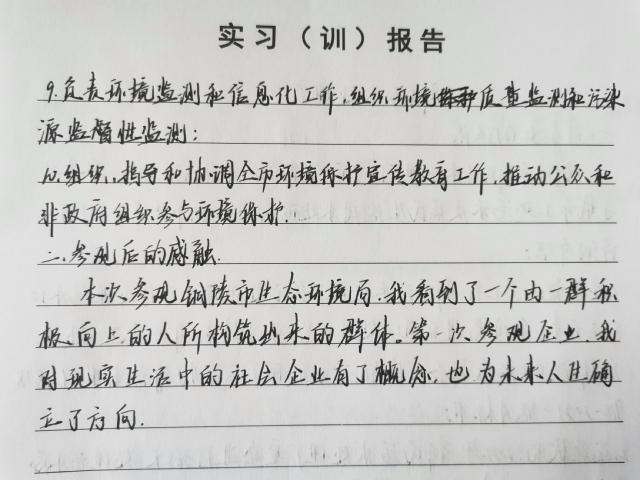 实习（训）报告
9.负责环境监测和信息化工作,组织环境质量监测和污染
源监督性监测;
10.组织、指导和协调全市环境保护宣传教育工作,推动公众和
非政府组织参与环境保护.
二、参观后的感触.
本次参观铜陵市生态环境局,我看到了一个由一群积
极向上的人所构筑出来的群体。第一次参观企业,我
对现实生活中的社会企业有了概念,也为未来人生确
立了方向.